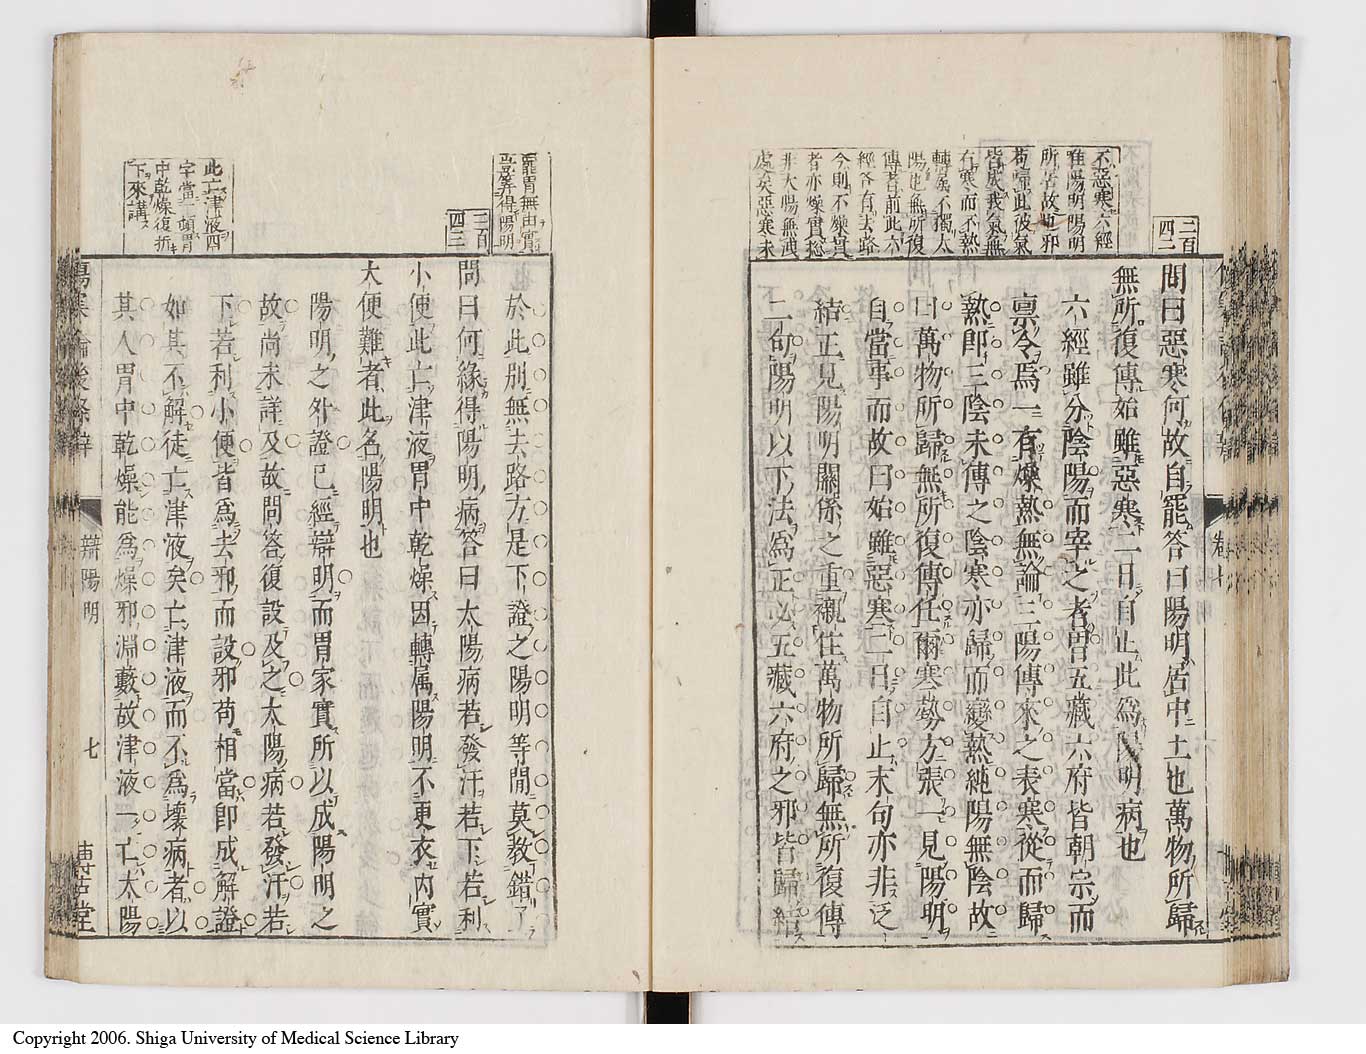 二百
四二
不惡寒六經
惟陽明陽明
所苦故也邪
苟歸此彼氣
皆成我氣無
右寒而不熱
轉屬不獨太
陽也無所復
傳者前此六
經各有去路
今則不爍貴
者亦爍實惣
非大陽無洩
處矣惡寒未
問曰惡寒何故自罷答曰陽明居中土也萬物所歸
無所復傳始雖惡寒二日自止此爲陽明病也
六經雖分陰陽而宰之者胃五藏六府皆朝宗而
稟令焉一有燥熱無論三陽傳來之表寒從而歸
熱即三陰未傳之陰寒亦歸而變熱純陽無陰故
曰萬物所歸無所復傳任爾寒勢方張一見陽明
自當事而故曰始雖惡寒二日自止末句亦非泛
結正見陽明關係之重襯住萬物所歸無所復傳
二句陽明以下法爲正必五藏六府之邪皆歸結
卷七
罷胃無由實
豈算得陽明
二百
四三
此亡津液四
字當一頓胃
中乾燥復折
下來講
於此別無去路方是下證之陽明等閒莫教錯了
問曰何緣得陽明病答曰太陽病若發汗若下若利
小便此亡津液胃中乾燥因轉属陽明不更衣内實
大便難者此名陽明也
陽明之外證已經辯明而胃家實所以成陽明之
故尚未詳及故問答復設及之太陽病若發汗若
下若利小便皆爲去邪而設邪苟相當即成解證
如其不解徒亡津液矣亡津液而不爲壞病者以
其人胃中乾燥能爲燥邪淵藪故津液一亡太陽
傷寒論後條辯
辯陽明
七
博古堂
Copyright 2006. Shiga University of Medical Science Library